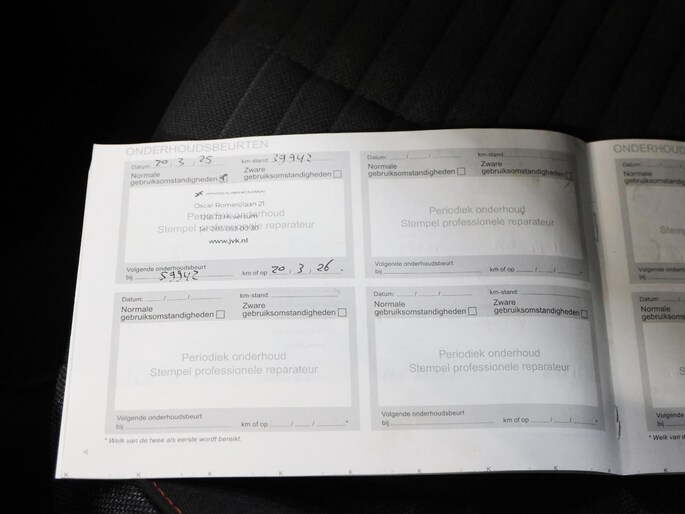 ONDERHOUDSBEURTEN
Datum: 20 , 3 , 25 km-stand: 39942
Normale gebruiksomstandigheden
Zware gebruiksomstandigheden
Oscar Romerolaan 21
Periodiek onderhoud
Stempel professionele reparateur
www.jvk.nl
Volgende onderhoudsbeurt
bij 59942 km of op 20 , 3 , 26 .
Datum: / / km-stand:
Normale gebruiksomstandigheden
Zware gebruiksomstandigheden
Periodiek onderhoud
Stempel professionele reparateur
Volgende onderhoudsbeurt
bij km of op / / *
Datum: / / km-stand:
Normale gebruiksomstandigheden
Zware gebruiksomstandigheden
Periodiek onderhoud
Stempel professionele reparateur
Volgende onderhoudsbeurt
bij km of op / / *
Datum: / / km-stand:
Normale gebruiksomstandigheden
Zware gebruiksomstandigheden
Periodiek onderhoud
Stempel professionele reparateur
Volgende onderhoudsbeurt
bij km of op / / *
* Welk van de twee als eerste wordt bereikt.
4
ONDERHOUD
Datum:
Normale
Volgende
bij
Datum:
Normale
Volgende
bij
* Welk van d